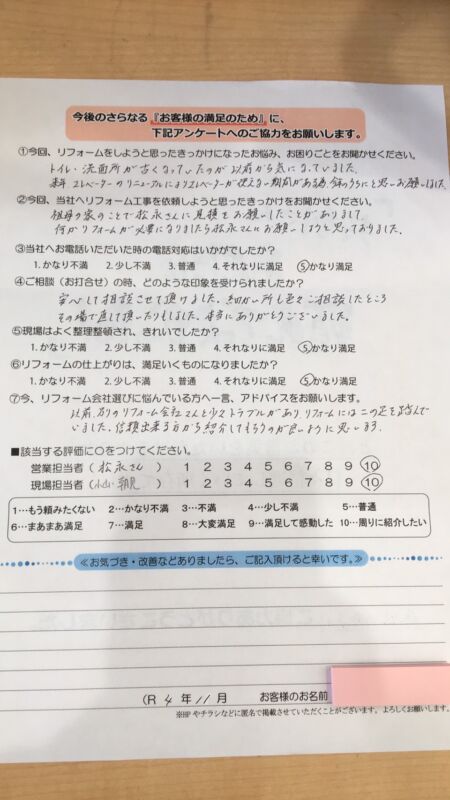 今後のさらなる『お客様の満足のため』に、
下記アンケートへのご協力をお願いします。
①今回、リフォームをしようと思ったきっかけになったお悩み、お困りごとをお聞かせください。
トイレ・洗面所が古くなっていたのが以前から気になっていました。
来年エレベーターのリニューアルによりエレベーターが使えない期間がある為、今のうちにと思いお願いしました。
②今回、当社へリフォーム工事を依頼しようと思ったきっかけをお聞かせください。
祖母の家のことで松永さんに見積をお願いしたことがありまして、
何かリフォームが必要になりましたら松永さんにお願いしようと思っておりました。
③当社へお電話いただいた時の電話対応はいかがでしたか?
1.かなり不満 2.少し不満 3.普通 4.それなりに満足 ⑤かなり満足
④ご相談(お打合せ)の時、どのような印象を受けられましたか?
安心して相談させて頂けました。細かい所も色々ご相談したところ
その場で直して頂いたりもしました。本当にありがとうございました。
⑤現場はよく整理整頓され、きれいでしたか?
1.かなり不満 2.少し不満 3.普通 4.それなりに満足 ⑤かなり満足
⑥リフォームの仕上がりは、満足いくものになりましたか?
1.かなり不満 2.少し不満 3.普通 4.それなりに満足 ⑤かなり満足
⑦今、リフォーム会社選びに悩んでいる方へ一言、アドバイスをお願いします。
以前、別のリフォーム会社さんと少々トラブルがあり、リフォームには二の足を踏んで
いました。信頼出来る方から紹介してもらうのが良いように思います。
■該当する評価に○をつけてください。
営業担当者(松永さん) 1 2 3 4 5 6 7 8 9 ⑩
現場担当者(小山・朝見) 1 2 3 4 5 6 7 8 9 ⑩
1…もう頼みたくない 2…かなり不満 3…不満 4…少し不満 5…普通
6…まあまあ満足 7…満足 8…大変満足 9…満足して感動した 10…周りに紹介したい
≪お気づき・改善などありましたら、ご記入頂けると幸いです。≫
(R 4 年 11 月 お客様のお名前
※HPやチラシなどに匿名で掲載させていただくことがございます。よろしくお願いします。